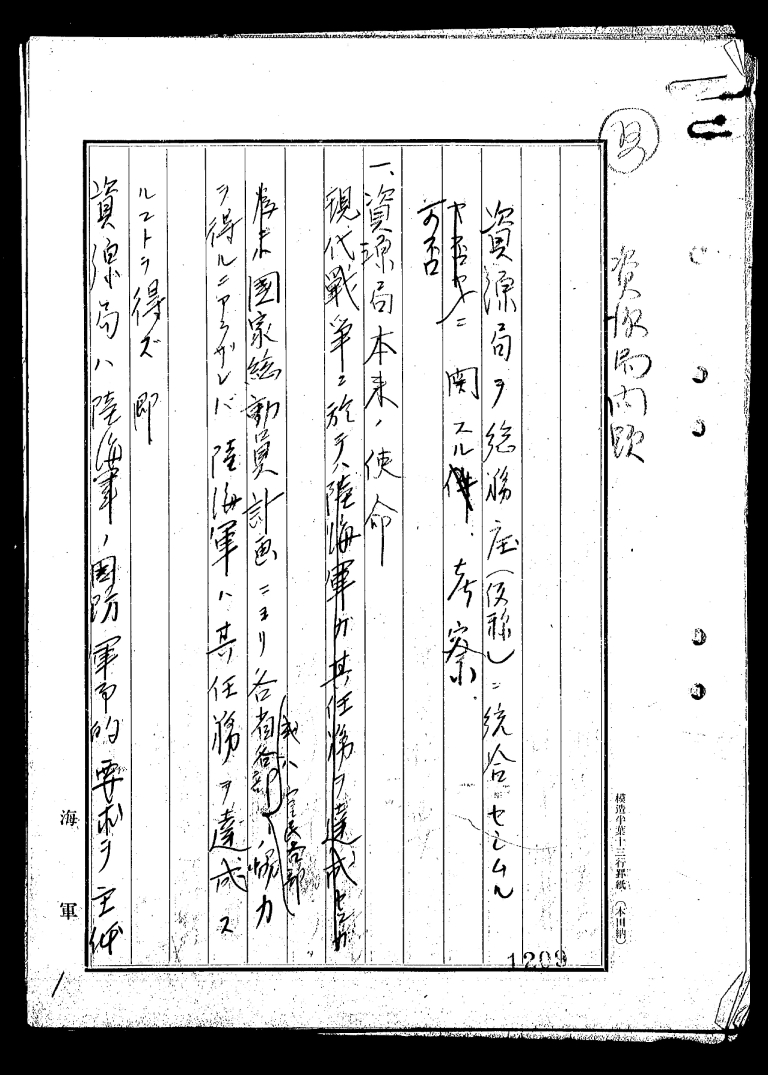 資源局問題
資源局ヲ総務庁(仮称)ニ統合セシムル
可否
ニ関スル件 考察
一、資源局本来ノ使命
現代戦争ニ於テハ陸海軍ガ其任務ヲ達成センガ
為ニハ国家総動員計画ニヨリ各省各部ノ協力
或ハ官民各部
ヲ得ルニアラザレバ陸海軍ハ其任務ヲ達成ス
ルコトヲ得ズ 即
資源局ハ陸海軍ノ国防軍事的要求ヲ主体
海軍
模造半葉十三行罫紙(本田納)
1209
1